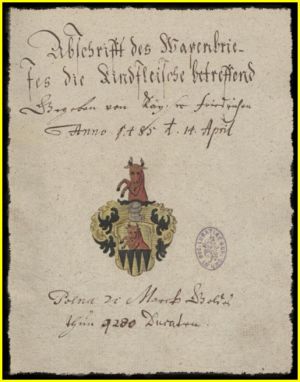 Abschrifft des Wapenbrie-
fes die Rindfleische betreffend
Gegeben von Kay: Friedrichen
Anno 1485 d. 14 April
Poena 21 Marck
thun 9280 Ducaten.